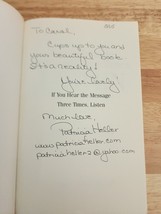 To Carol,
Cups up to you and
your beautiful book
Etha reality!
You're lovely!
If You Hear the Message
Three Times, Listen
Much love,
Patricia Heller
www.patriciaheller.com
patriciaheller2@yahoo.com